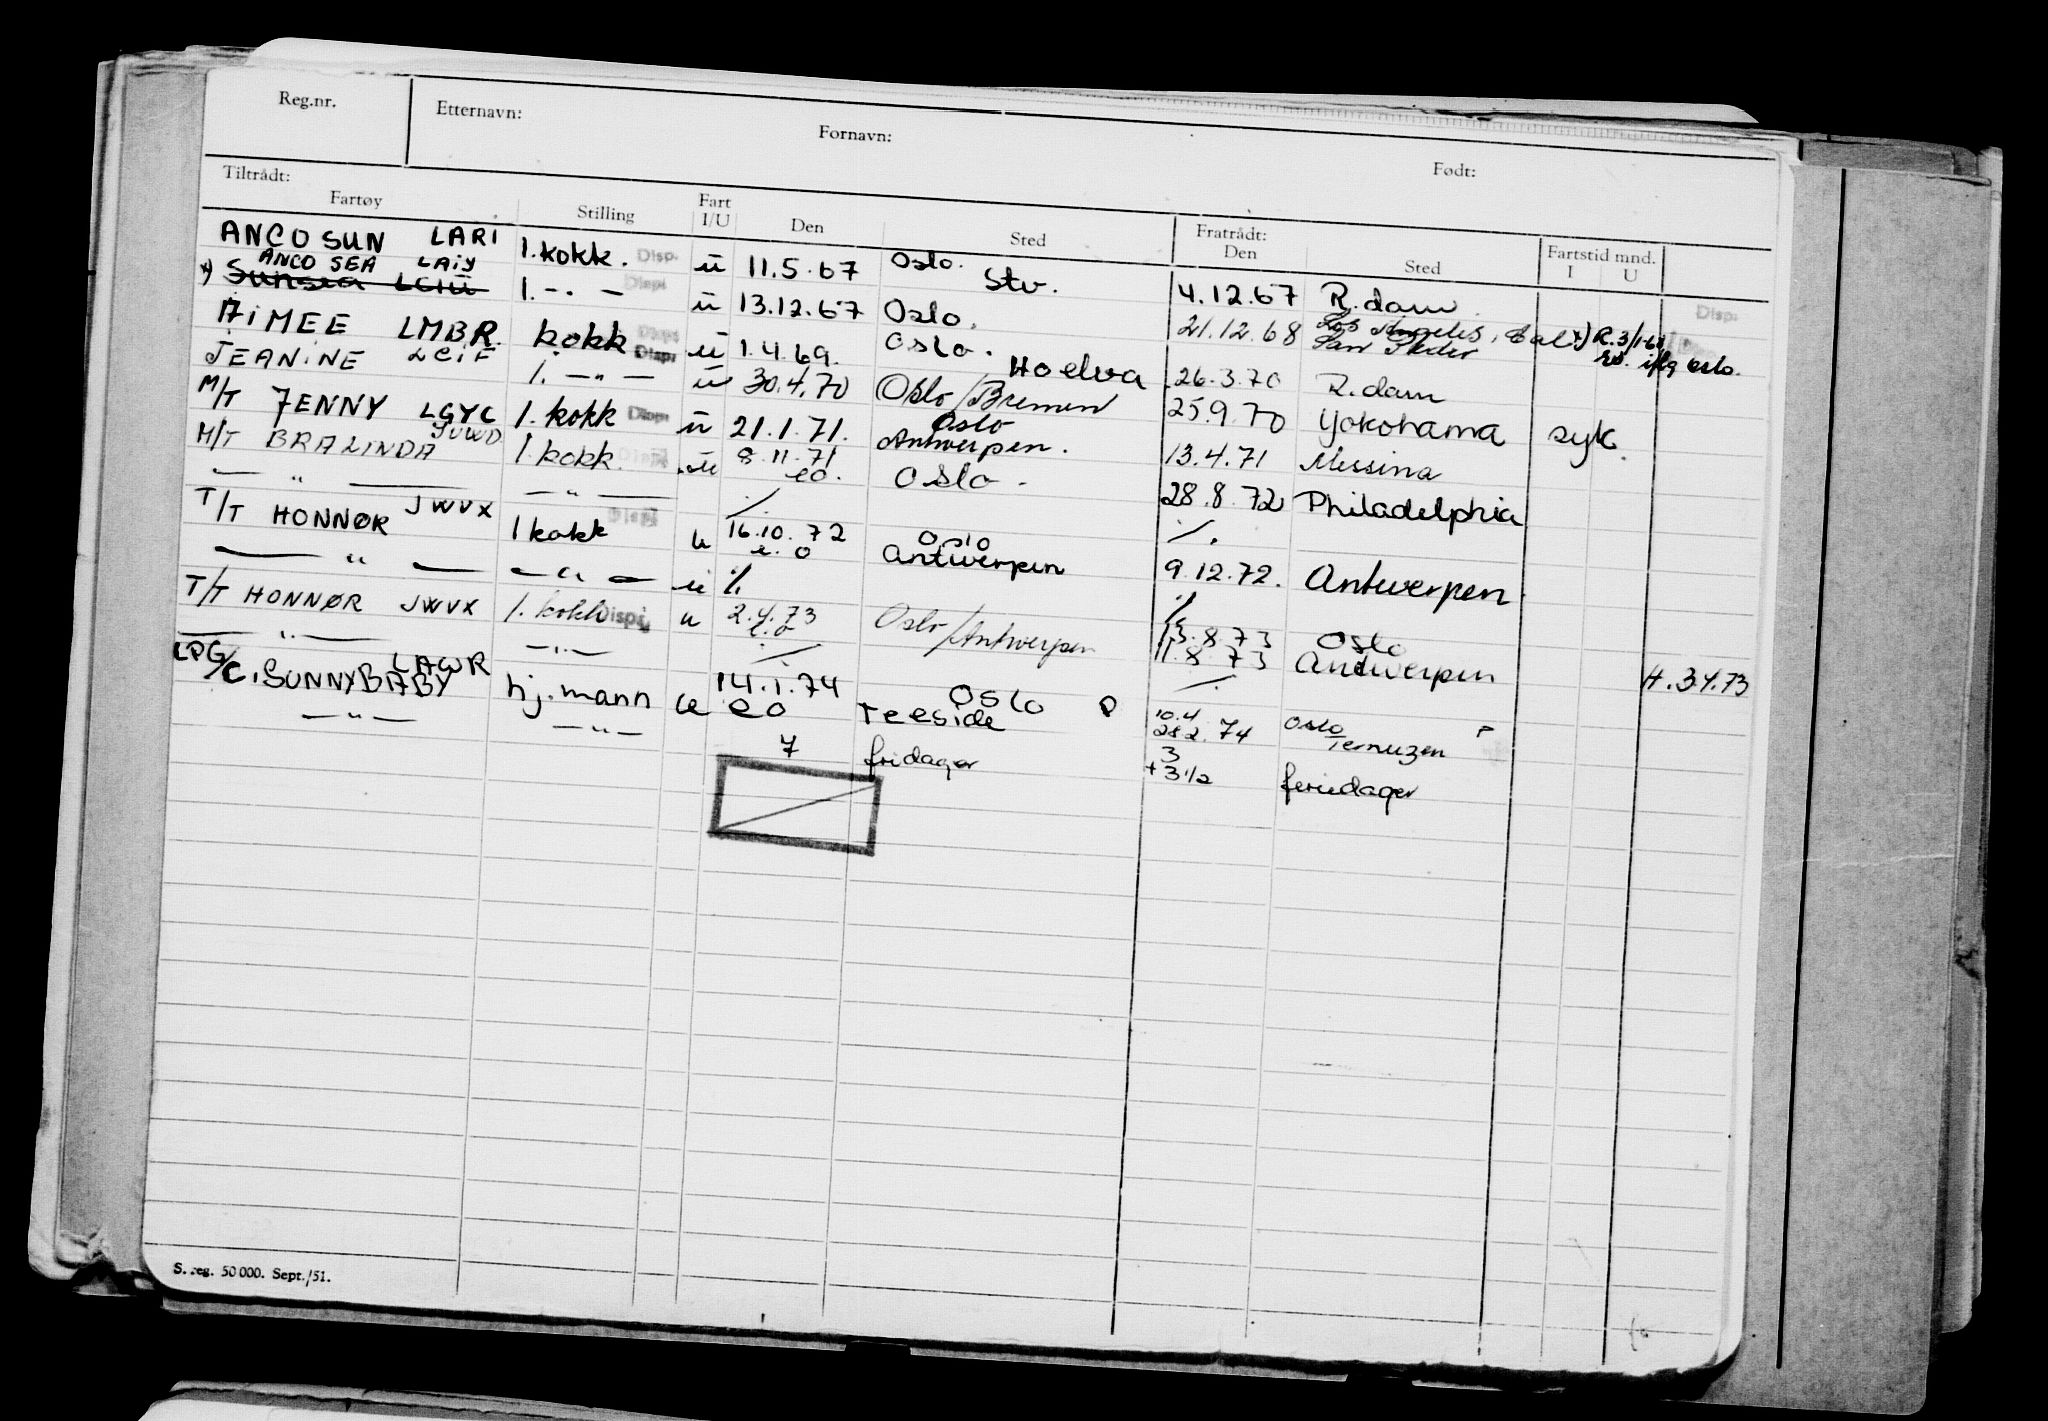 Reg.nr. Etternavn: Fornavn: Født:
Tiltrådt: Fratrådt:
Fartøy Stilling Fart I/U Den Sted Den Sted Fartstid mnd. I U
ANCO SUN LARI 1. kokk. Disp. ü 11.5.67 Oslo. Stv. 4.12.67 R.dam Disp.
ANCO SEA LAIY
x) Sunsea LCIU 1. -"- Disp. ü 13.12.67 Oslo. 21.12.68 Los Angeles, Cal x) R.3/1-68
San Pedro iflg Oslo.
AIMEE LMBR kokk Disp. ü 1.4.69. Oslo. Hoelva 26.3.70 R.dam
JEANINE LCIF 1. -"- Disp. ü 30.4.70 Oslo/Bremen 25.9.70 Yokohama syk.
M/T JENNY LGYC 1. kokk Disp. ü 21.1.71. Oslo 13.4.71 Messina
M/T BRALINDA JVWD 1. kokk. Disp. ü 8.11.71 Antwerpen. 28.8.72 Philadelphia
-"- -"- eo. Oslo. ·/.
T/T HONNØR JWVX 1 kokk Disp. u 16.10.72 Oslo 9.12.72. Antwerpen
-"- -"- ü e.o Antwerpen ·/.
T/T HONNØR JWVX 1. kokk Disp. u 2.4.73 Oslo/Antwerpen 13.8.73 Oslo
-"- -"- e.o ·/. 11.8.73 Antwerpen H.3.4.73
LPG/C. SUNNYBABY LAWR hj.mann u 14.1.74 Oslo P 10.4 Oslo P
-"- -"- eo Teeside 28.2.74 Ternuzen
7 fridager 3 + 3 1/2 feriedager
S. reg. 50 000. Sept./51.